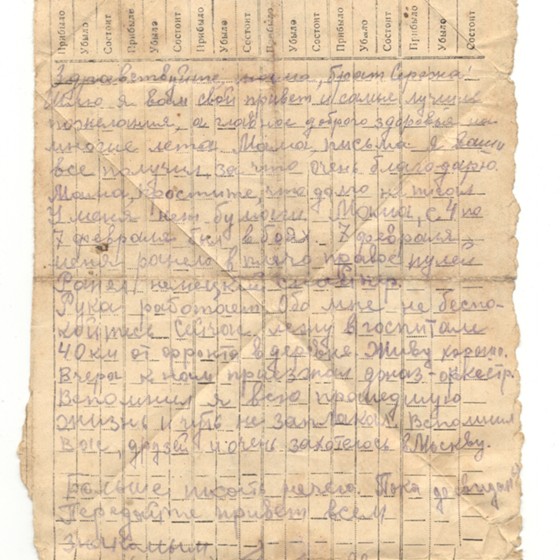 Прибыло Убыло Состоит Прибыло Убыло Состоит Прибыло Убыло Состоит Прибыло Убыло Состоит Прибыло Убыло Состоит Прибыло Убыло Состоит
Здравствуйте мама, брат Сережа!
Шлю я вам свой привет и самые лучшие
пожелания, а главное доброго здоровья на
многие лета. Мама письма я ваши
все получил, за что очень благодарю.
Мама, простите, что долго не писал
У меня нет бумаги. Мама, с 4 по
7 февраля был в боях. 7 февраля
меня ранело в плечо правое пулей
Ранел немецкий снайпер.
Рука работает. Обо мне не беспо-
койтесь. Сейчас лежу в госпитале
40 км от фронта в деревне. Живу хорошо.
Вчера к нам приезжал джаз-оркестр.
Вспомнил я всю прошедшую
жизнь и чуть не заплакал. Вспомнил
Вас, друзей и очень захотелось в Москву.
Больше писать нечего. Пока до свидания
Передайте привет всем
знакомым